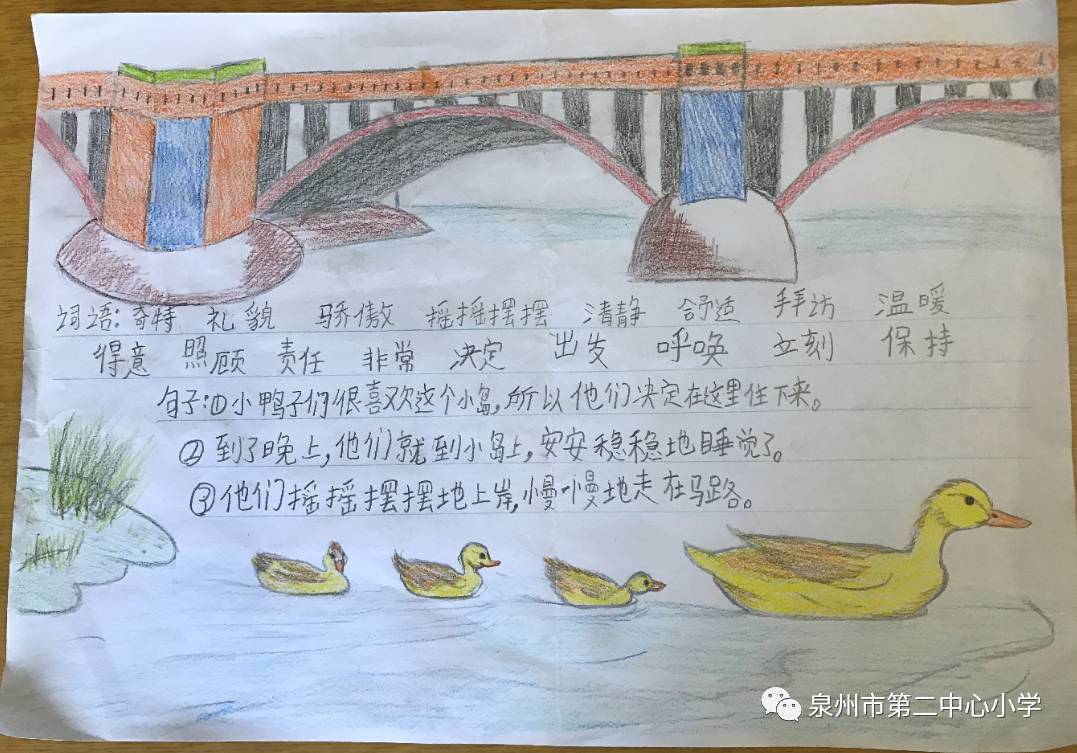 词语:奇特 礼貌 骄傲 摇摇摆摆 清静 舒适 拜访 温暖
得意 照顾 责任 非常 决定 出发 呼唤 立刻 保持
句子:①小鸭子们很喜欢这个小岛,所以他们决定在这里住下来。
②到了晚上,他们就到小岛上,安安稳稳地睡觉了。
③他们摇摇摆摆地上岸,慢慢地走在马路。
泉州市第二中心小学